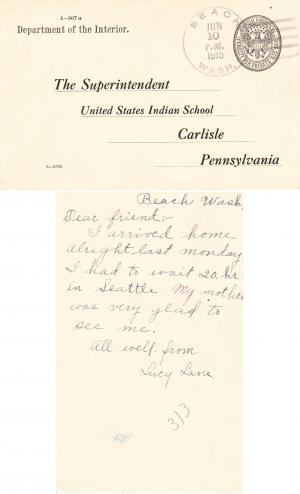 1—367 a
Department of the Interior.
BEACH
JUN
10
P.M.
1915
WASH.
The Superintendent
United States Indian School
Carlisle
Pennsylvania
Beach Wash.
Dear friend:-
I arrived home
alright, last monday
I had to wait 20, hr.
in Seattle. My mother
was very glad to
see me.
All well. from
Lucy Lane
313